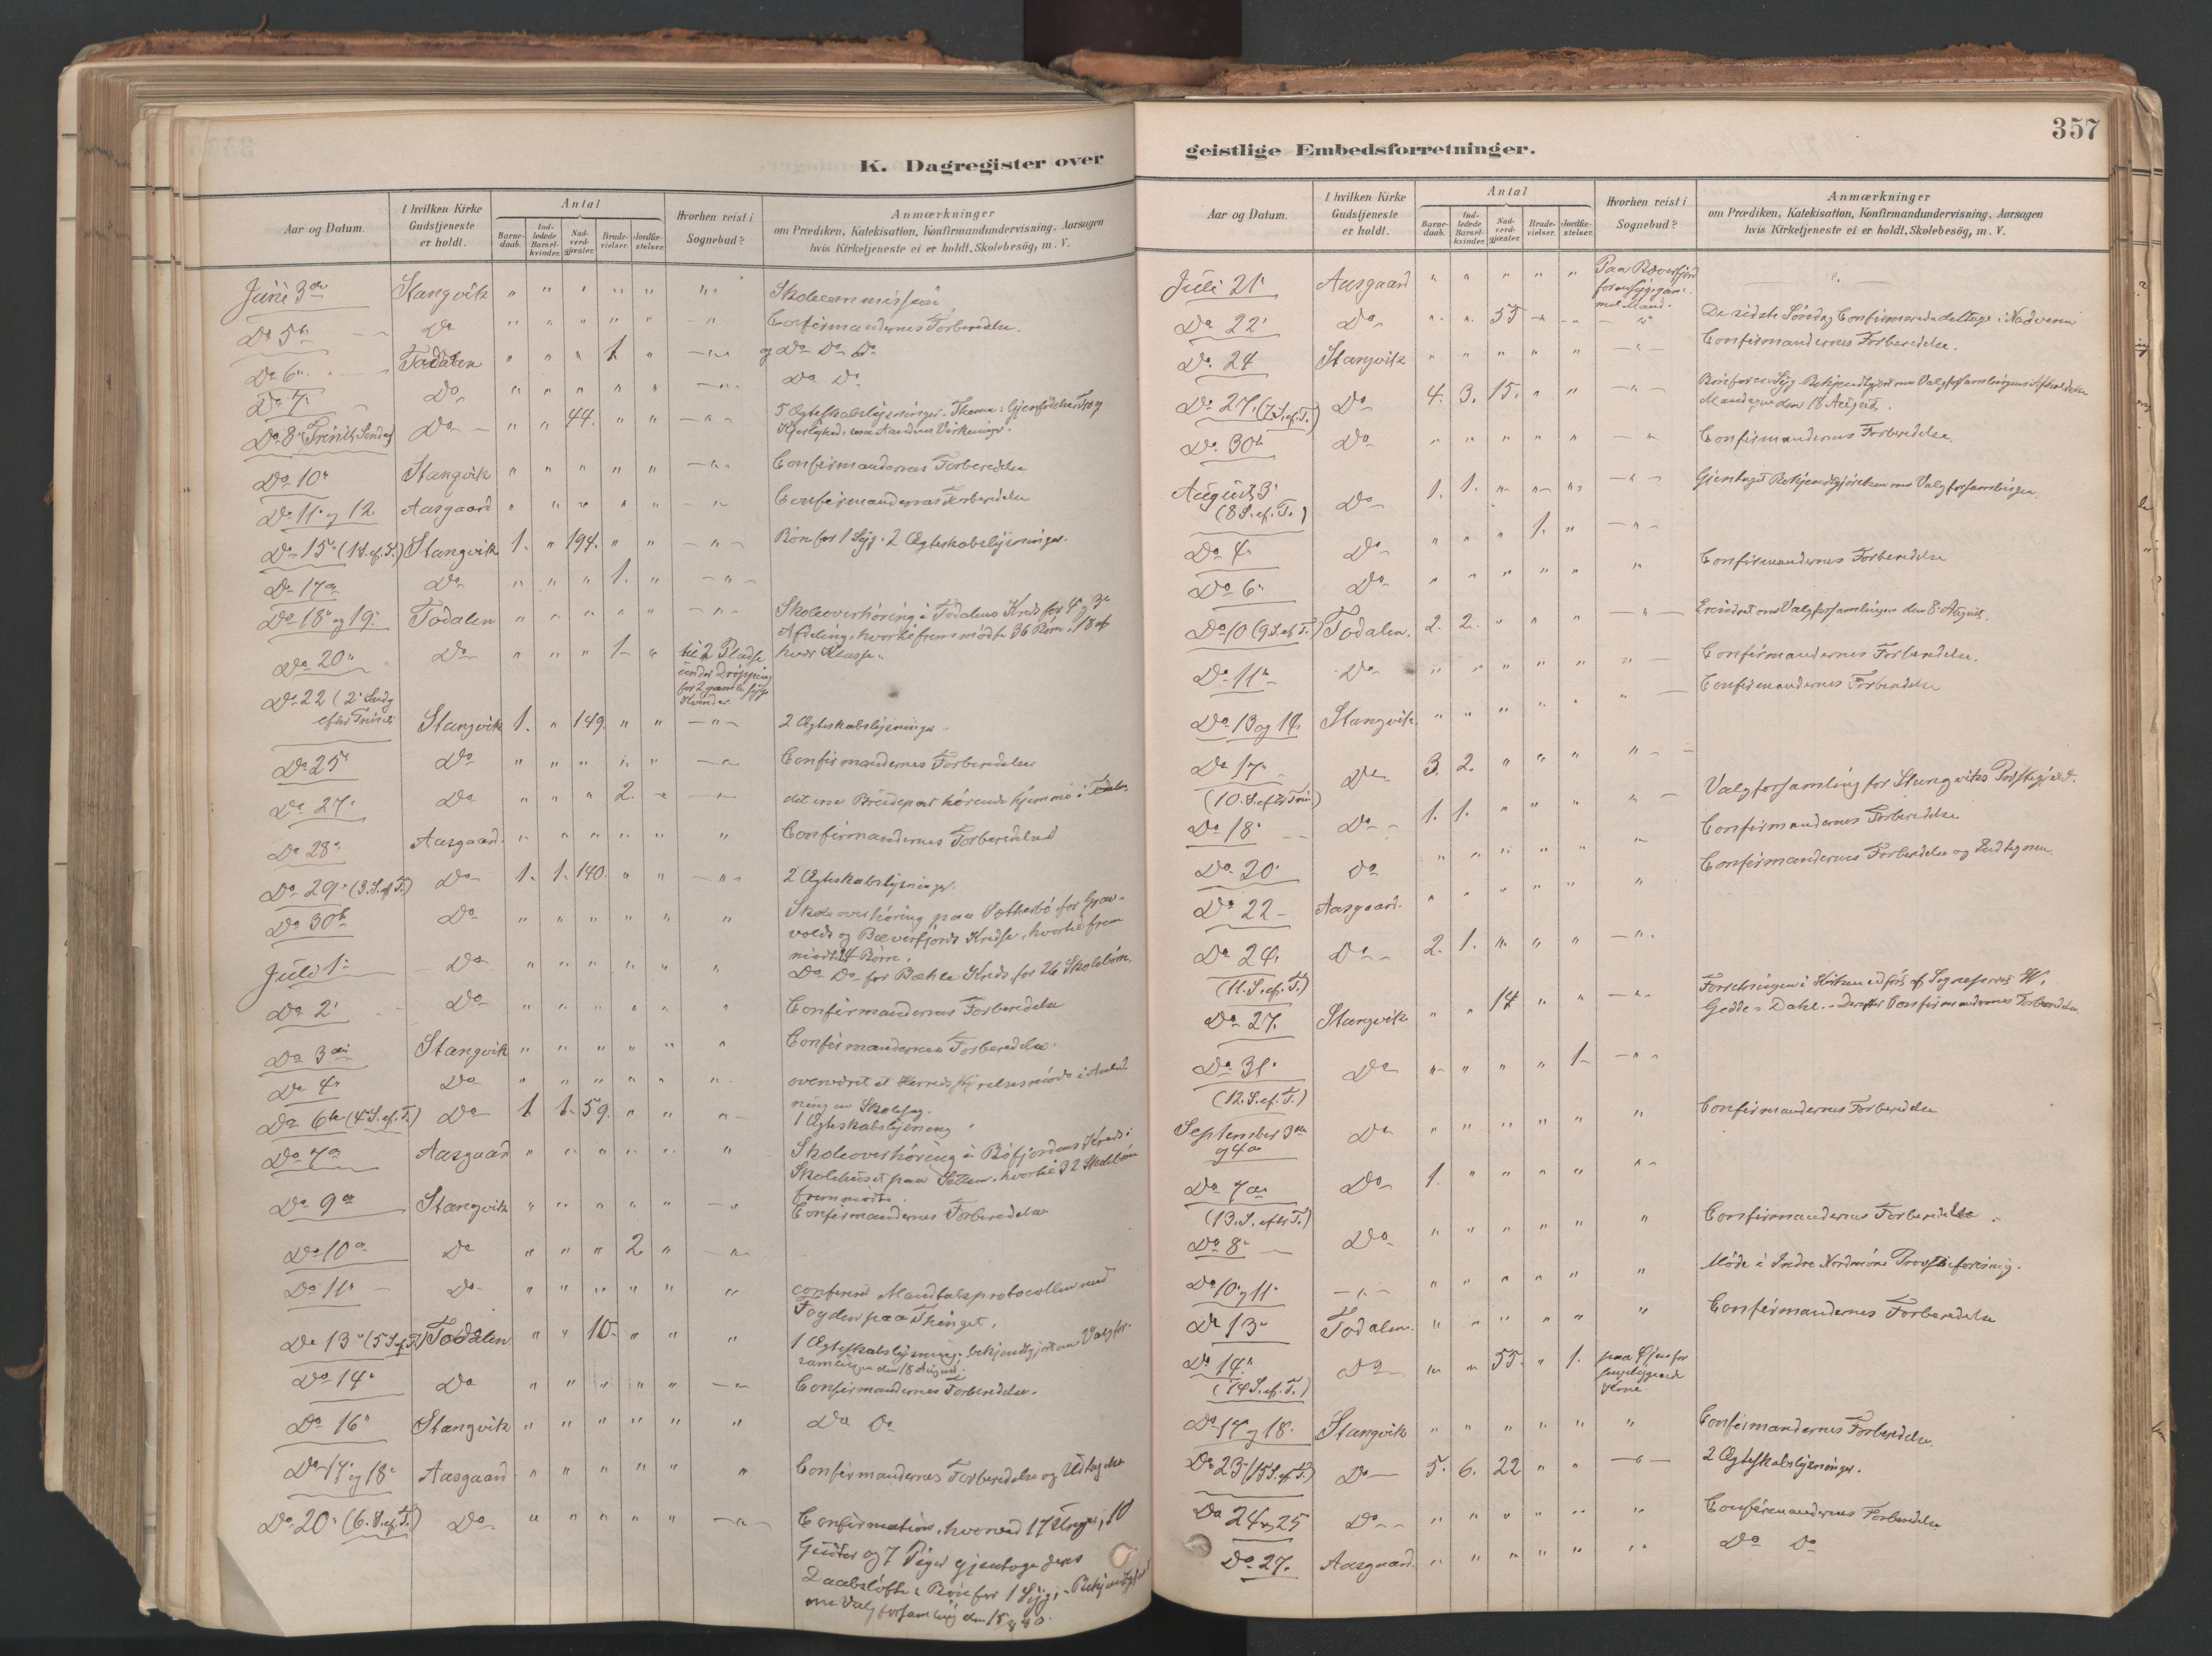 K. Dagregister over
Aar og Datum.
I hvilken Kirke Gudstjeneste er holdt.
Antal
Barne-daab.
Ind-ledede Barsel-kvinder.
Nad-verd-gjæster.
Brude-vielser.
Jordfæ-stelser.
Hvorhen reist i Sognebud?
Anmærkninger
om Prædiken, Katekisation, Konfirmandundervisning, Aarsagen
hvis Kirketjeneste ei er holdt, Skolebesög, m. V.
Juni 3die Stangvik " " " " " " Skolecommission
Do 5te Do " " " " " — " Confirmandernes Forberedelse.
Do 6te Todalen " " " 1. " — " — og Do Do Do
Do 7. Do " " " " " — " — Do Do
Do 8. (Trinit. Søndag) Do " " 44. " " — " — 5 Ægteskabslysninger. Thema: Gjenfødelse, Tro og
Kjærlighed, som Aandens Virkninger.
Do 10. Stangvik " " " " " — " — Confirmandernes Forberedelse
Do 11. og 12. Aasgaard " " " " " — " Confirmandernes Forberedelse
Do 15. (1 S. ef. T.) Stangvik 1. " 194. " " — " — Bøn for 1 Syg. 2 Ægteskabslysninger.
Do 17de Do " " " 1. " — " —
Do 18. og 19. Todalen " " " " " — " — Skoleoverhøring i Todalens Kreds for 4. 3die
Afdeling, hvortil fremmødte 36 Børn, 18 af
hver Klasse.
Do 20. Do " " " 1 " til 2 Pladse
under
for 2 gamle syge
Kvinder
Do 22 (2. Sndg
efter Trinit. Stangvik 1. " 149. " " — " — 2 Ægteskabslysninger.
Do 25. Do " " " " " — " Confirmandernes Forberedelse
Do 27. Do " " " 2. " — " det ene Brudepar hørende hjemme i Todalen
Do 28. Aasgaard. " " " " " " Confirmandernes Forberedelse
Do 29. (3. S. ef. T.) Do 1. 1. 140. " " — " — 2 Ægteskabslysninger.
Do 30te Do " " " " " " Skoleoverhøring paa Sætherbø for Grav-
volds og Bæverfjords Kredse, hvortil frem
mødt 24 Børn.
Juli 1. Do " " " " " " Do Do for Bæhle Kreds for 26 Skolebørn.
Do 2. Do " " " " " " Confirmandernes Forberedelse
Do 3die Stangvik " " " " " " Confirmandernes Forberedelse
Do 4. Do " " " " " " overværet et Herredsstyrelsesmøde i Anled
ning av Skolesag.
Do 6te (4 S. ef. T.) Do 1 1. 59. " " " 1 Ægteskabslysning
Do 7de Aasgaard " " " " " " Skoleoverhøring i Bøfjordens Kreds i
Skolehuset paa Sættem, hvortil 32 Skolebørn
fremmødte.
Do 9de Stangvik " " " " " — " Confirmandernes Forberedelse
Do 10de Do " " " 2 " — " —
Do 11te Do " " " " " " confereret Mandtalsprotocollen med
Fogden paa Thinget.
Do 13. (5 S. ef. T.) Todalen " " 10. " " " 1 Ægteskabslysning. bekjendtgjort om Valgfor-
samlingen den 18 August.
Do 14. Do " " " " " — " Confirmandernes Forberedelse.
Do 16. Stangvik " " " " " " Do Do
Do 17. og 18. Aasgaard " " " " " " Confirmandernes Forberedelse og Udtagelse
Do 20. (6. S. ef. T.) Do " " " " " — " — Confirmation, hvorved 17 Unge, 10
Gutter og 7 Piger gjentoge deres
Daabsløfte. Bøn for 1 Syg. - Bekjendtgjort
om Valgforsamling den 18
357
geistlige Embedsforretninger.
Aar og Datum.
I hvilken Kirke Gudstjeneste er holdt.
Antal
Barne-daab.
Ind-ledede Barsel-kvinder.
Nad-verd-gjæster.
Brude-vielser.
Jordfæ-stelser.
Hvorhen reist i Sognebud?
Anmærkninger
om Prædiken, Katekisation, Konfirmandundervisning, Aarsagen
hvis Kirketjeneste ei er holdt, Skolebesög, m. V.
Juli 21. Aasgaard " " " " " Paa Bæverfjord
for en syg gam-
mel Mand.
Do 22. Do " " 55 " " " De sidste Søndag Confirmerede deltoge i Nadveren
Do 24 Stangvik " " " " " — " — Confirmandernes Forberedelse.
Do 27. (7. S. ef. T.) Do 4. 3. 15. " " — " — Bøn for en Syg. Bekjendtgjort om Valgforsamlingens Afholdelse
Mandagen den 18 August.
Do 30te Do " " " " " — " Confirmandernes Forberedelse.
August 3.
(8 S. ef. T.) Do 1. 1. " " " — " — Gjentaget Bekjendtgjørelsen om Valgforsamlingen.
Do 4. Do " " " 1. " — " —
Do 6. Do " " " " " " Confirmandernes Forberedelse
Do 10 (9 S. ef. T.) Todalen. 2. 2. " " " — " — Erindret om Valgforsamlingen den 18. August.
Do 11te Do " " " " " " — Confirmandernes Forberedelse.
Do 13 og 14. Stangvik " " " " " " — Confirmandernes Forberedelse
Do 17.
(10. S. efter Trin.) Do 3. 2. " " " " —
Do 18. Do 1. 1. " " " " — Valgforsamling for Stangviks Præstegjeld.
Do 20. Do " " " " " " Confirmandernes Forberedelse.
Do 22 Aasgaard. " " " " " " Confirmandernes Forberedelse og Udtagen.
Do 24.
(11. S. ef. T.) Do 2. 1. " " " — " —
Do 27. Stangvik " " 14 " " — " — Forretningen i Kirken udført af Sognepræst W.
Gedde-Dahl. - Derefter Confirmandernes Forberedelse.
Do 31.
(12. S. ef. T.) Do " " " " 1 — " —
September 3die
og 4de Do " " " " " " Confirmandernes Forberedelse
Do 7de
(13. S. efter T.) Do 1. " " " " " —
Do 8. Do " " " " " " Confirmandernes Forberedelse.
Do 10. og 11. — " — " " " " " " Møde i Indre Nordmøre Provstiforening.
Do 13. Todalen. " " " " " " Confirmandernes Forberedelse
Do 14.
(14 S. ef. T.) Do " " 55. " 1. paa for
Kone
Do 17 og 18. Stangvik " " " " " " Confirmandernes Forberedelse.
Do 23. (15 S. ef. T.) Do 5. 6. 22 " " — " — 2 Ægteskabslysninger.
Do 24 og 25 Do " " " " " " Confirmandernes Forberedelse
Do 27. Aasgaard. " " " " " " Do Do